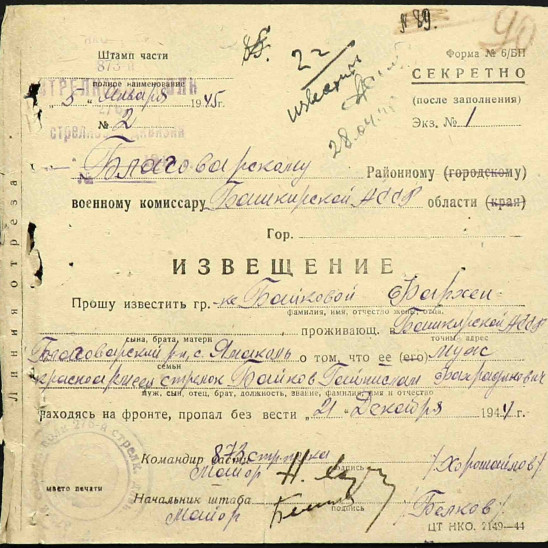 № 89.
Штамп части
873-й
полное наименование
"5" Января 1945г.
№ 2
22
известить
28.04.45
Форма № 6/БН
СЕКРЕТНО
(после заполнения)
Экз. № 1
Благоварскому Районному (городскому)
военному комиссару Башкирской АССР области (край)
Гор.
ИЗВЕЩЕНИЕ
Прошу известить гр.-ке Байковой
фамилия, имя, отчество
проживающ. в Башкирской АССР
сына, брата, матери точный адрес
Благоварский р-н, с. о том, что ее (его) муж
семьи
красноармеец стрелок Байков
муж, сын, отец, брат, должность, звание, фамилия, имя и отчество
находясь на фронте, пропал без вести "21" Декабря 1944г.
Командир 873 стр. полка
Майор /Хорошайлов/
подпись
Начальник штаба
Майор /Белков/
подпись
место печати
ЦТ НКО. 2149—44
Линия отреза